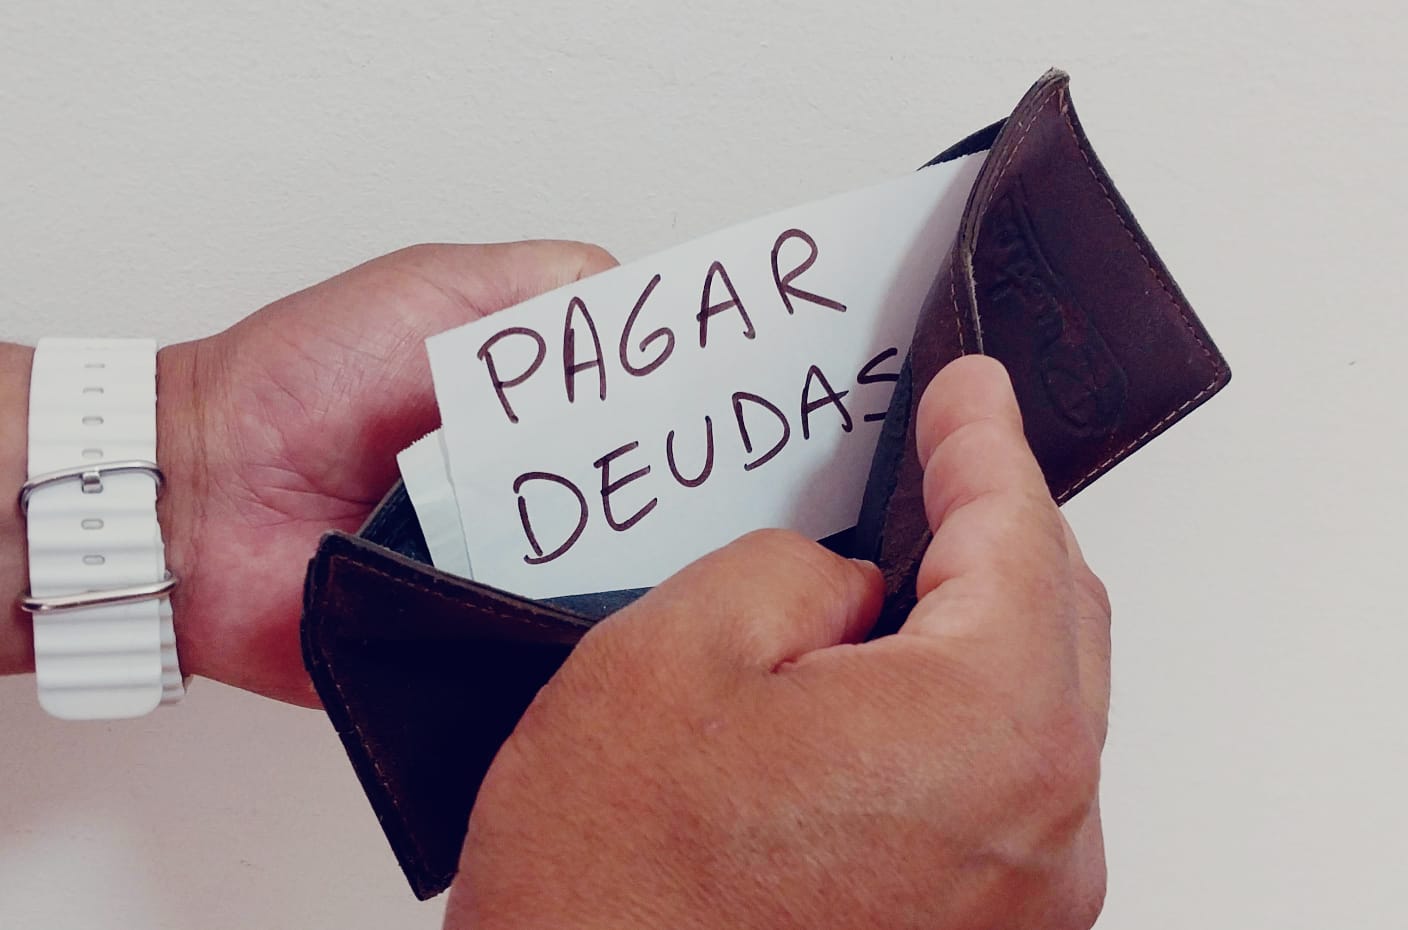 PAGAR
DEUDAS